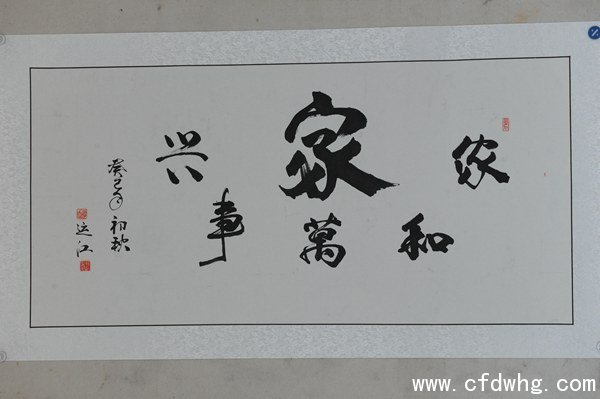 家和家萬事兴
癸巳年初秋
运江
www.cfdwhg.com